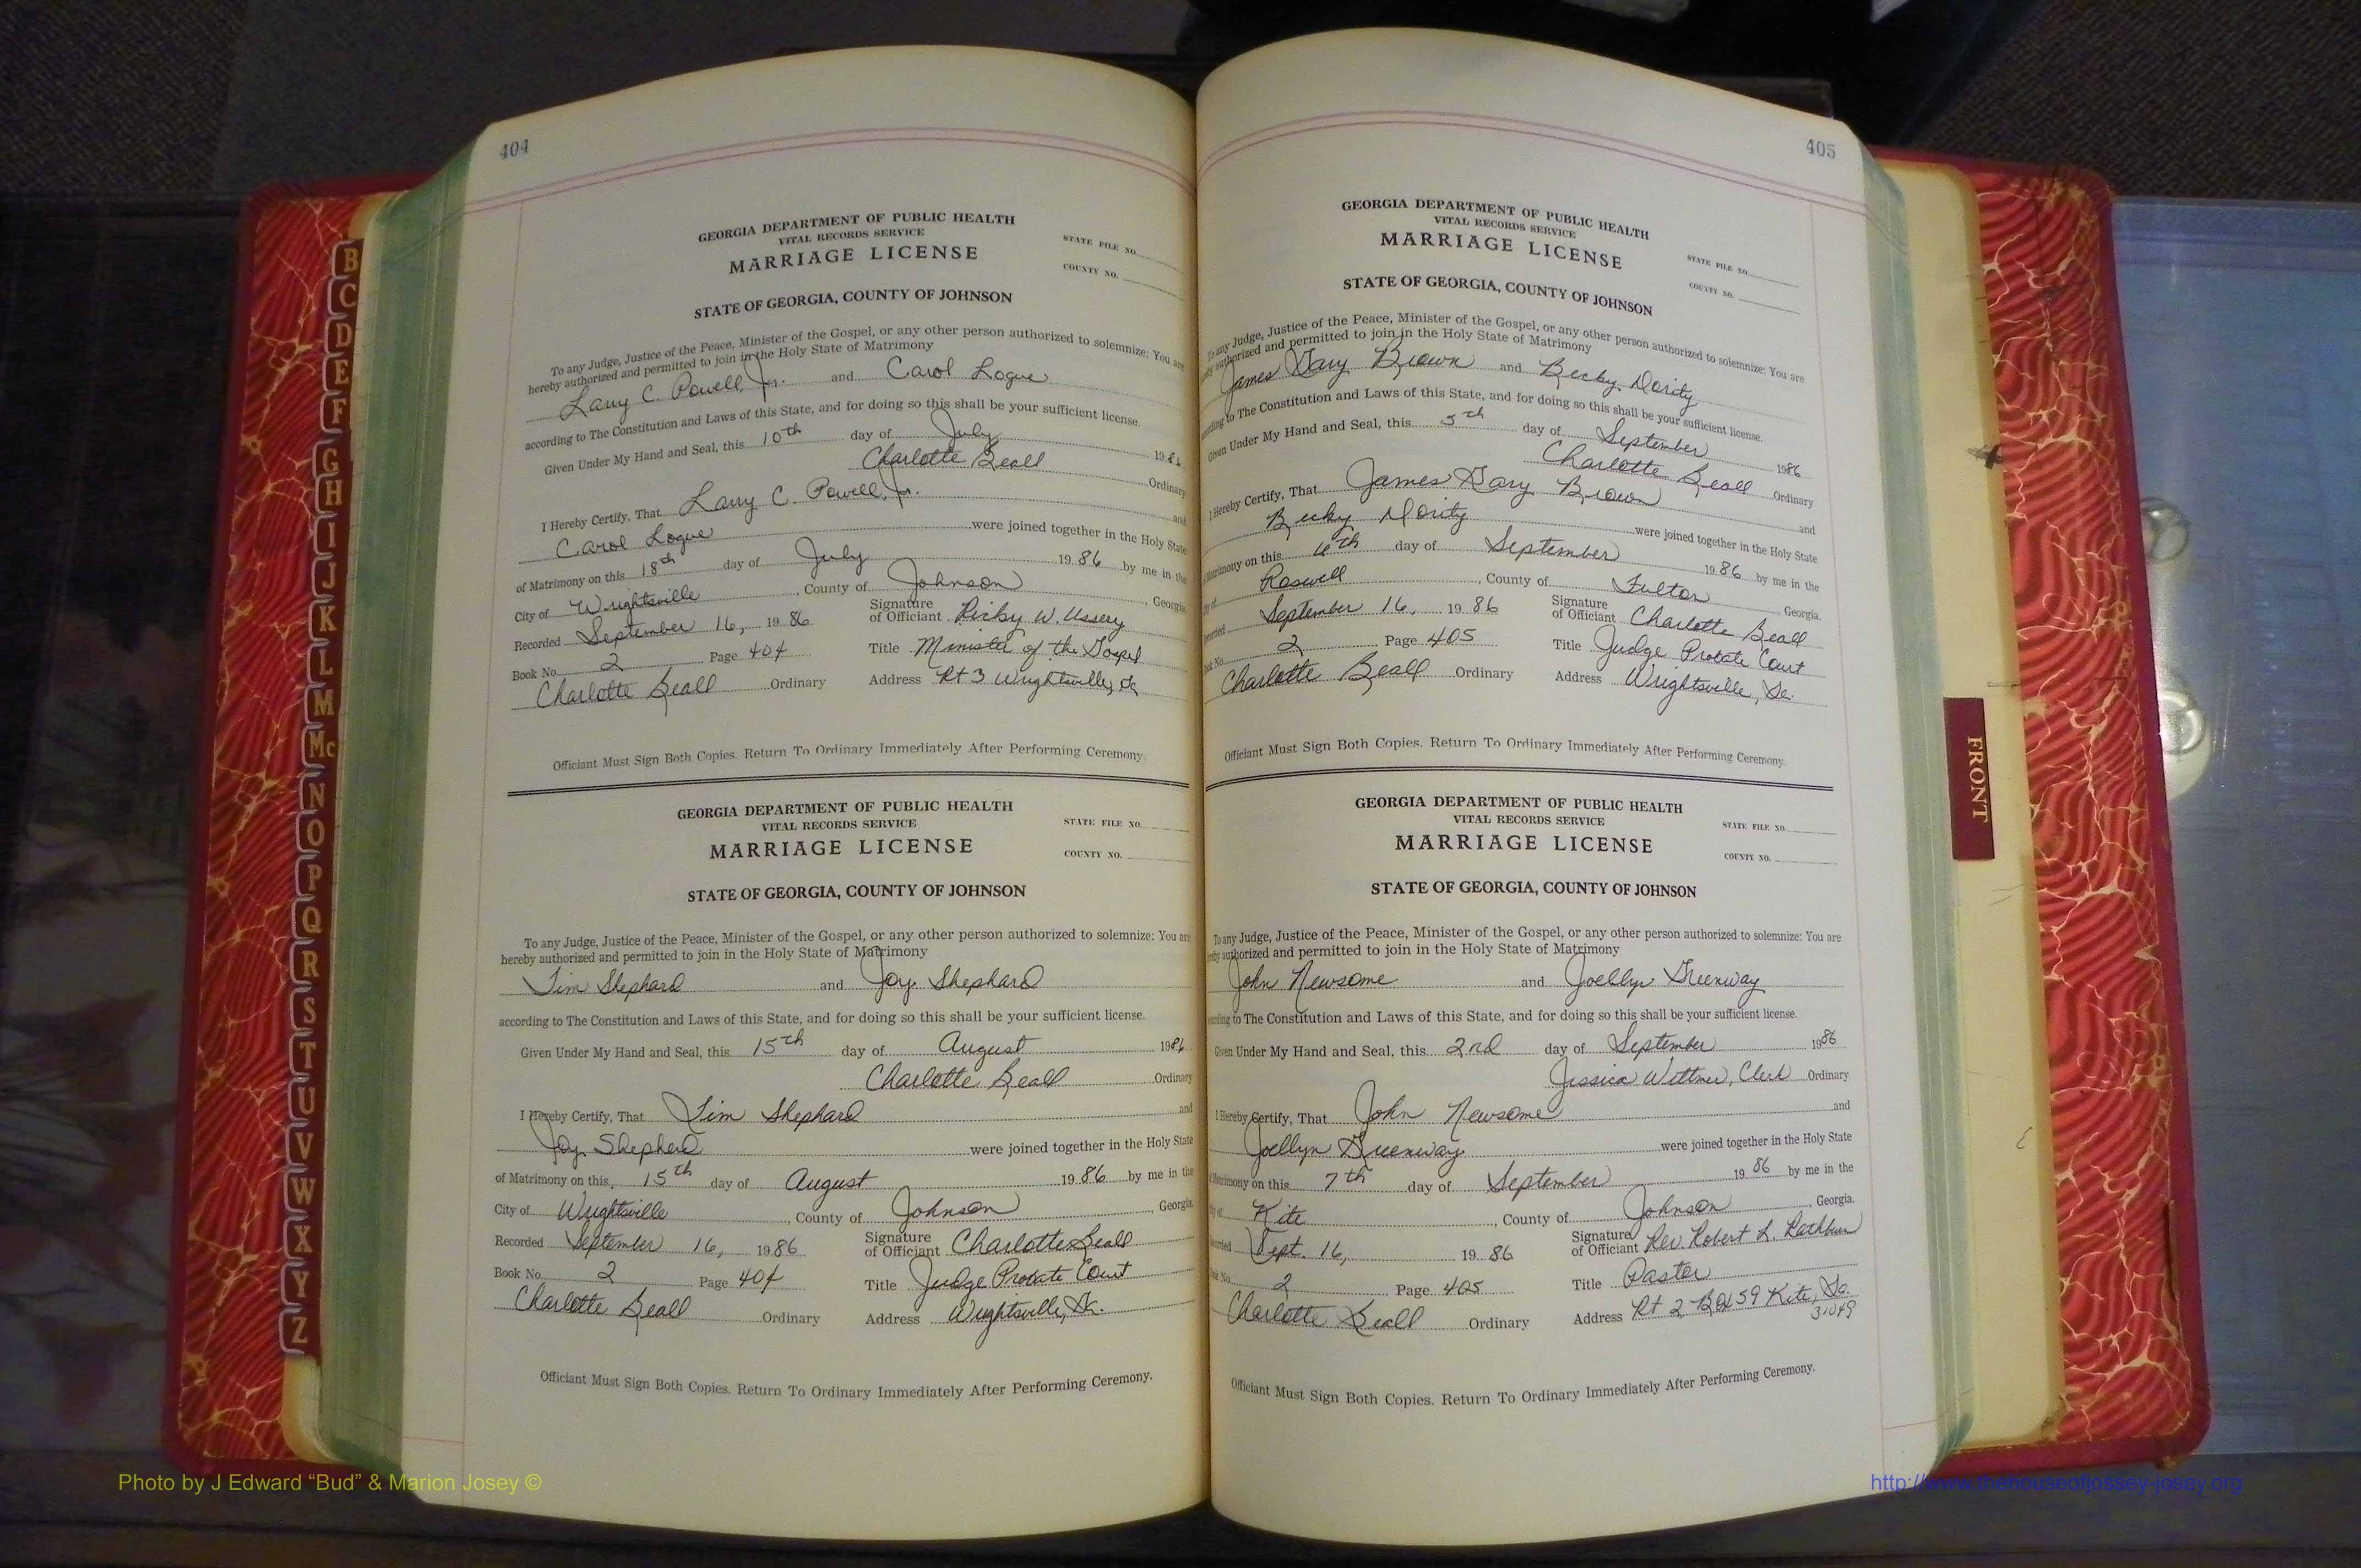 404
GEORGIA DEPARTMENT OF PUBLIC HEALTH
VITAL RECORDS SERVICE
MARRIAGE LICENSE
STATE FILE NO.
COUNTY NO.
STATE OF GEORGIA, COUNTY OF JOHNSON
To any Judge, Justice of the Peace, Minister of the Gospel, or any other person authorized to solemnize: You are
hereby authorized and permitted to join in the Holy State of Matrimony
Larry C. Powell, Jr. and Carol Logue
according to The Constitution and Laws of this State, and for doing so this shall be your sufficient license.
Given Under My Hand and Seal, this 10th day of July 1986
Charlotte Beall Ordinary
I Hereby Certify, That Larry C. Powell, Jr. and
Carol Logue were joined together in the Holy State
of Matrimony on this 18th day of July 1986 by me in the
City of Wrightsville, County of Johnson, Georgia
Recorded September 16, 1986 Signature of Officiant Ricky W. Ussery
Book No. 2 Page 404 Title Minister of the Gospel
Charlotte Beall Ordinary Address Rt 3 Wrightsville, Ga
Officiant Must Sign Both Copies. Return To Ordinary Immediately After Performing Ceremony.
GEORGIA DEPARTMENT OF PUBLIC HEALTH
VITAL RECORDS SERVICE
MARRIAGE LICENSE
STATE FILE NO.
COUNTY NO.
STATE OF GEORGIA, COUNTY OF JOHNSON
To any Judge, Justice of the Peace, Minister of the Gospel, or any other person authorized to solemnize: You are
hereby authorized and permitted to join in the Holy State of Matrimony
Tim Shephard and Joy Shephard
according to The Constitution and Laws of this State, and for doing so this shall be your sufficient license.
Given Under My Hand and Seal, this 15th day of August 1986
Charlotte Beall Ordinary
I Hereby Certify, That Tim Shephard and
Joy Shepherd were joined together in the Holy State
of Matrimony on this 15th day of August 1986 by me in the
City of Wrightsville, County of Johnson, Georgia
Recorded September 16, 1986 Signature of Officiant Charlotte Beall
Book No. 2 Page 404 Title Judge Probate Court
Charlotte Beall Ordinary Address Wrightsville, Ga.
Officiant Must Sign Both Copies. Return To Ordinary Immediately After Performing Ceremony.
405
GEORGIA DEPARTMENT OF PUBLIC HEALTH
VITAL RECORDS SERVICE
MARRIAGE LICENSE
STATE FILE NO.
COUNTY NO.
STATE OF GEORGIA, COUNTY OF JOHNSON
To any Judge, Justice of the Peace, Minister of the Gospel, or any other person authorized to solemnize: You are
authorized and permitted to join in the Holy State of Matrimony
James Gary Brown and Becky Dority
to The Constitution and Laws of this State, and for doing so this shall be your sufficient license.
Given Under My Hand and Seal, this 5th day of September 1986
Charlotte Beall Ordinary
I Hereby Certify, That James Gary Brown and
Becky Dority were joined together in the Holy State
Matrimony on this 6th day of September 1986 by me in the
Roswell, County of Fulton, Georgia
September 16, 1986 Signature of Officiant Charlotte Beall
2 Page 405 Title Judge Probate Court
Charlotte Beall Ordinary Address Wrightsville, Ga.
Officiant Must Sign Both Copies. Return To Ordinary Immediately After Performing Ceremony.
GEORGIA DEPARTMENT OF PUBLIC HEALTH
VITAL RECORDS SERVICE
MARRIAGE LICENSE
STATE FILE NO.
COUNTY NO.
STATE OF GEORGIA, COUNTY OF JOHNSON
To any Judge, Justice of the Peace, Minister of the Gospel, or any other person authorized to solemnize: You are
authorized and permitted to join in the Holy State of Matrimony
John Newsome and Joellyn Greenway
to The Constitution and Laws of this State, and for doing so this shall be your sufficient license.
Given Under My Hand and Seal, this 2nd day of September 1986
Jessica Wittmer, Clerk Ordinary
I Hereby Certify, That John Newsome and
Joellyn Greenway were joined together in the Holy State
Matrimony on this 7th day of September 1986 by me in the
Kite, County of Johnson, Georgia.
Sept. 16, 1986 Signature of Officiant Rev. Robert L. Rathbun
2 Page 405 Title Pastor
Charlotte Beall Ordinary Address Rt 2 Box 59 Kite, Ga. 31049
Officiant Must Sign Both Copies. Return To Ordinary Immediately After Performing Ceremony.
B
C
D
E
F
G
H
I
J
K
L
M
Mc
N
O
P
Q
R
S
T
U
V
W
X
Y
Z
FRONT
Photo by J Edward “Bud” & Marion Josey ©
http://www.thehouseofjossey-josey.org